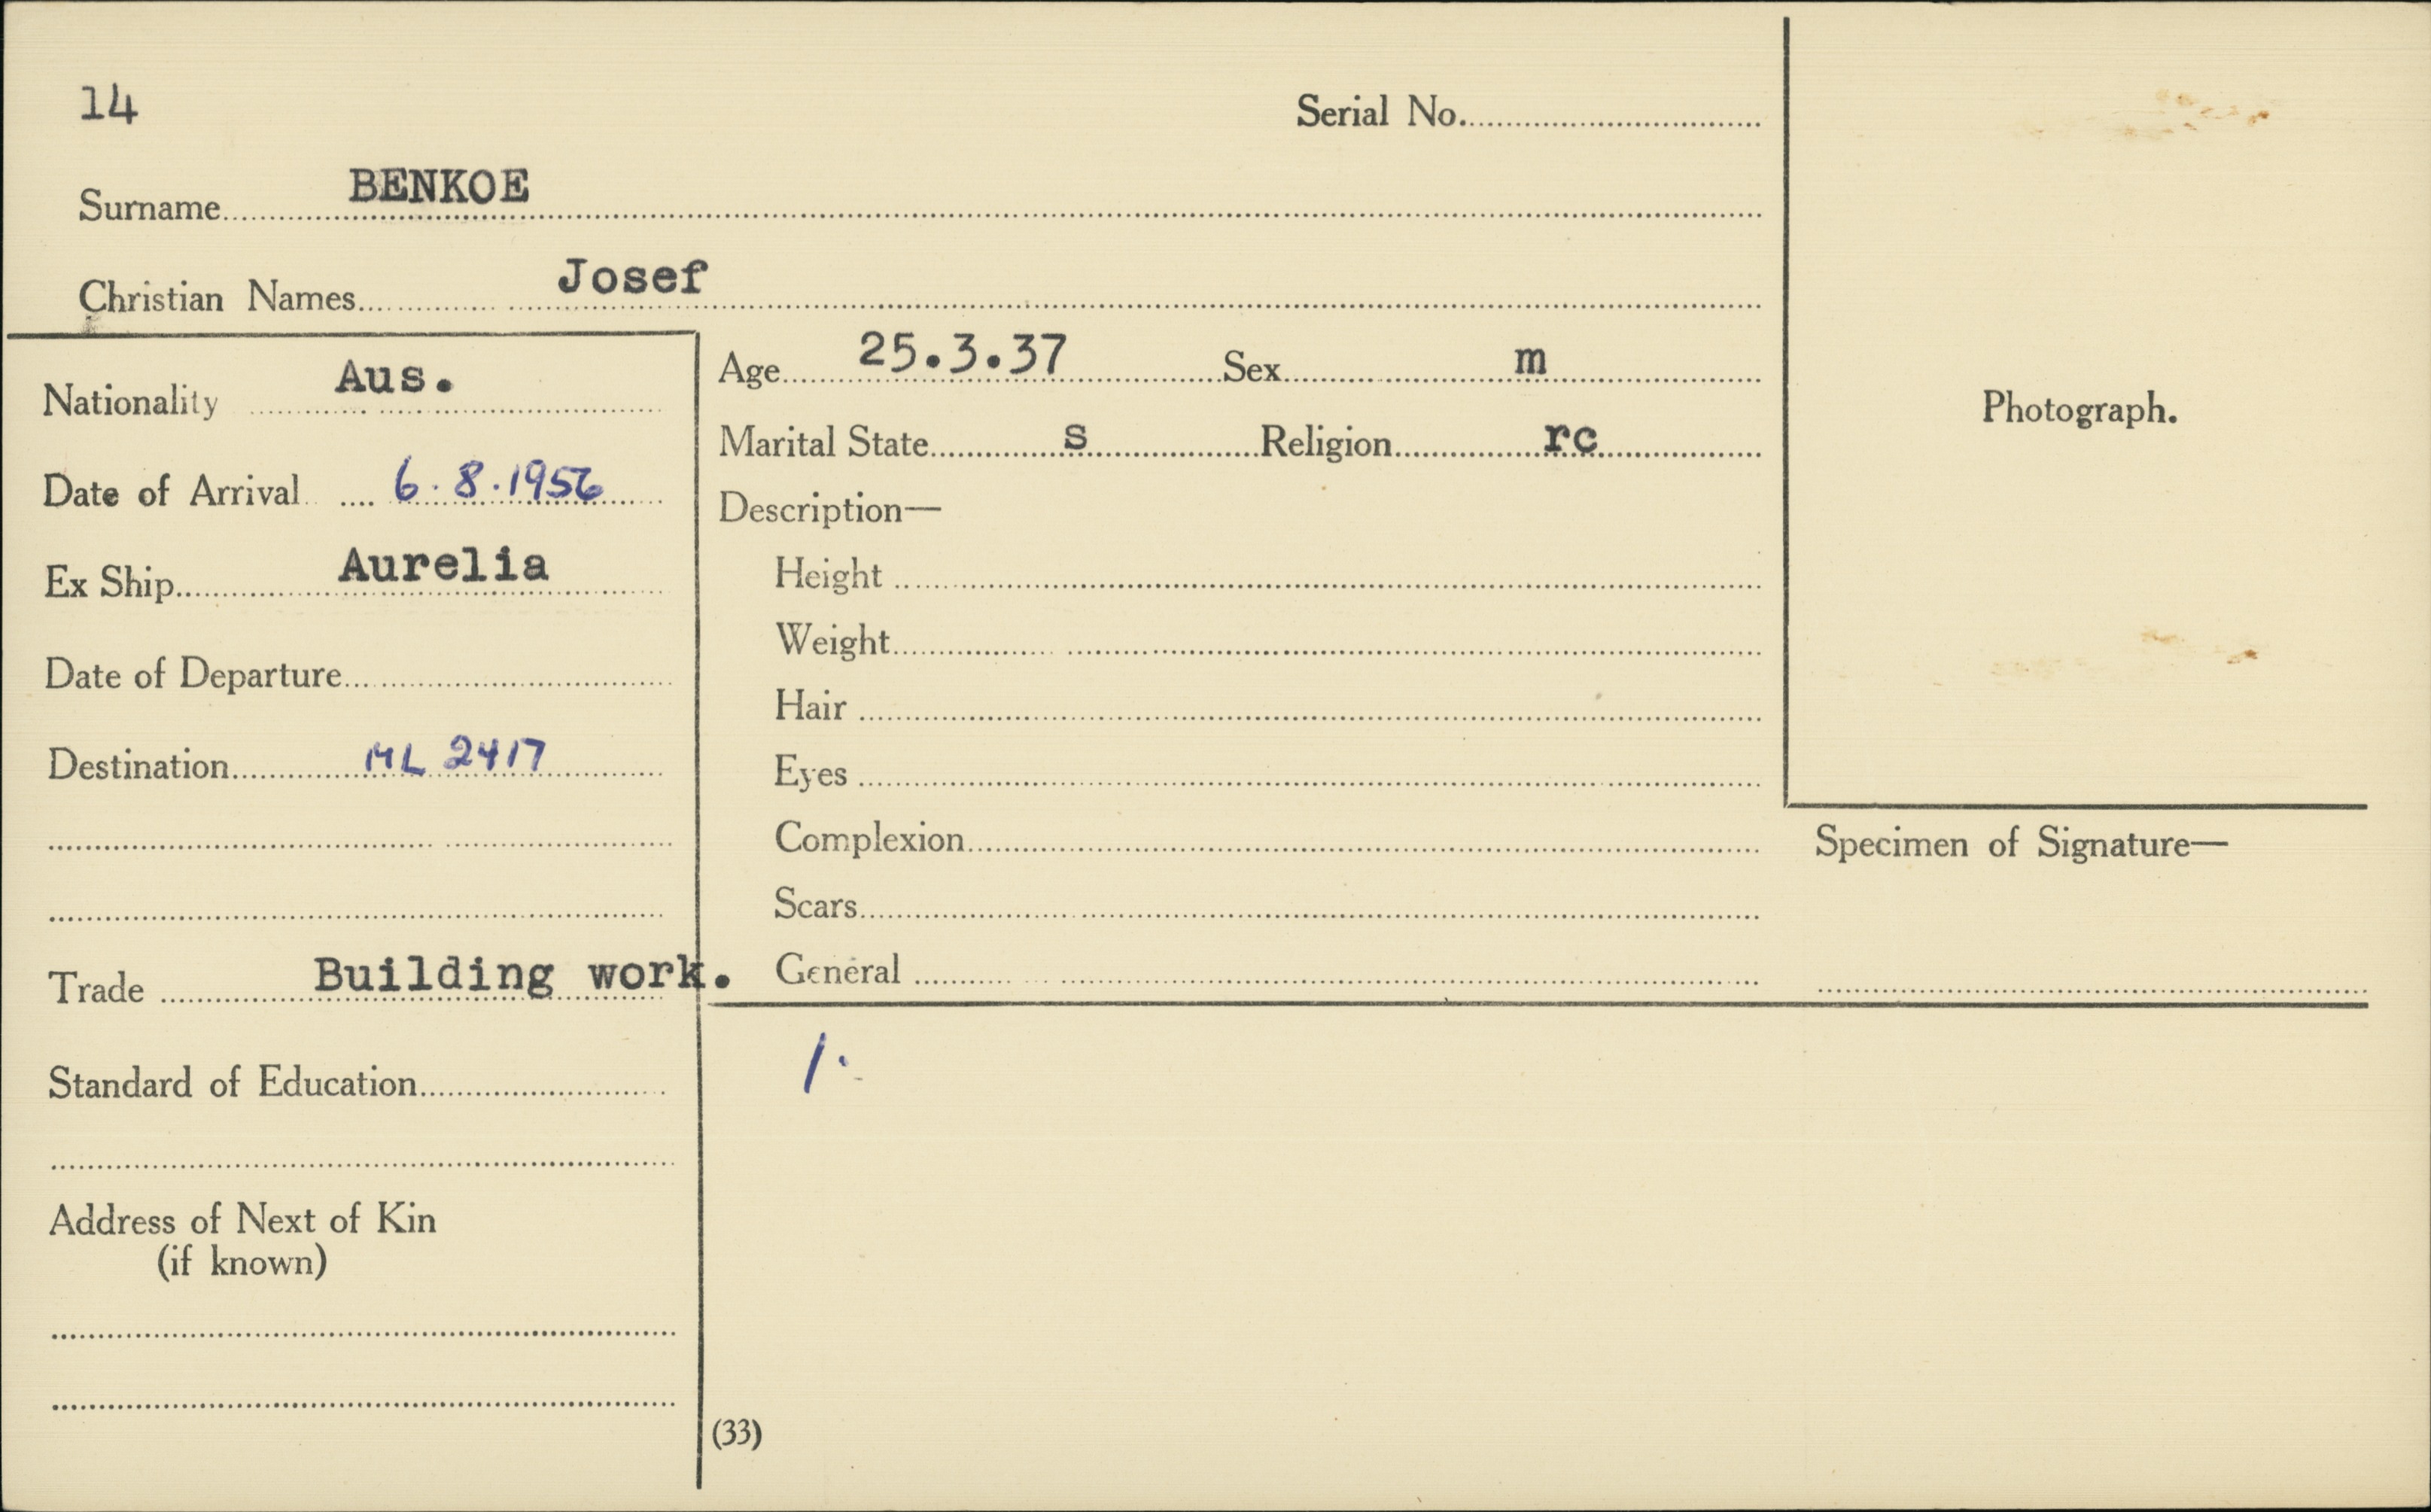 14
Serial No.
Surname BENKOE
Christian Names Josef
Nationality Aus.
Date of Arrival 6.8.1956
Ex Ship Aurelia
Date of Departure
Destination ML 2417
Trade Building work.
Standard of Education
Address of Next of Kin
(if known)
Age 25.3.37 Sex m
Marital State s Religion rc
Description—
Height
Weight
Hair
Eyes
Complexion
Scars
General
1.
(33)
Photograph.
Specimen of Signature—